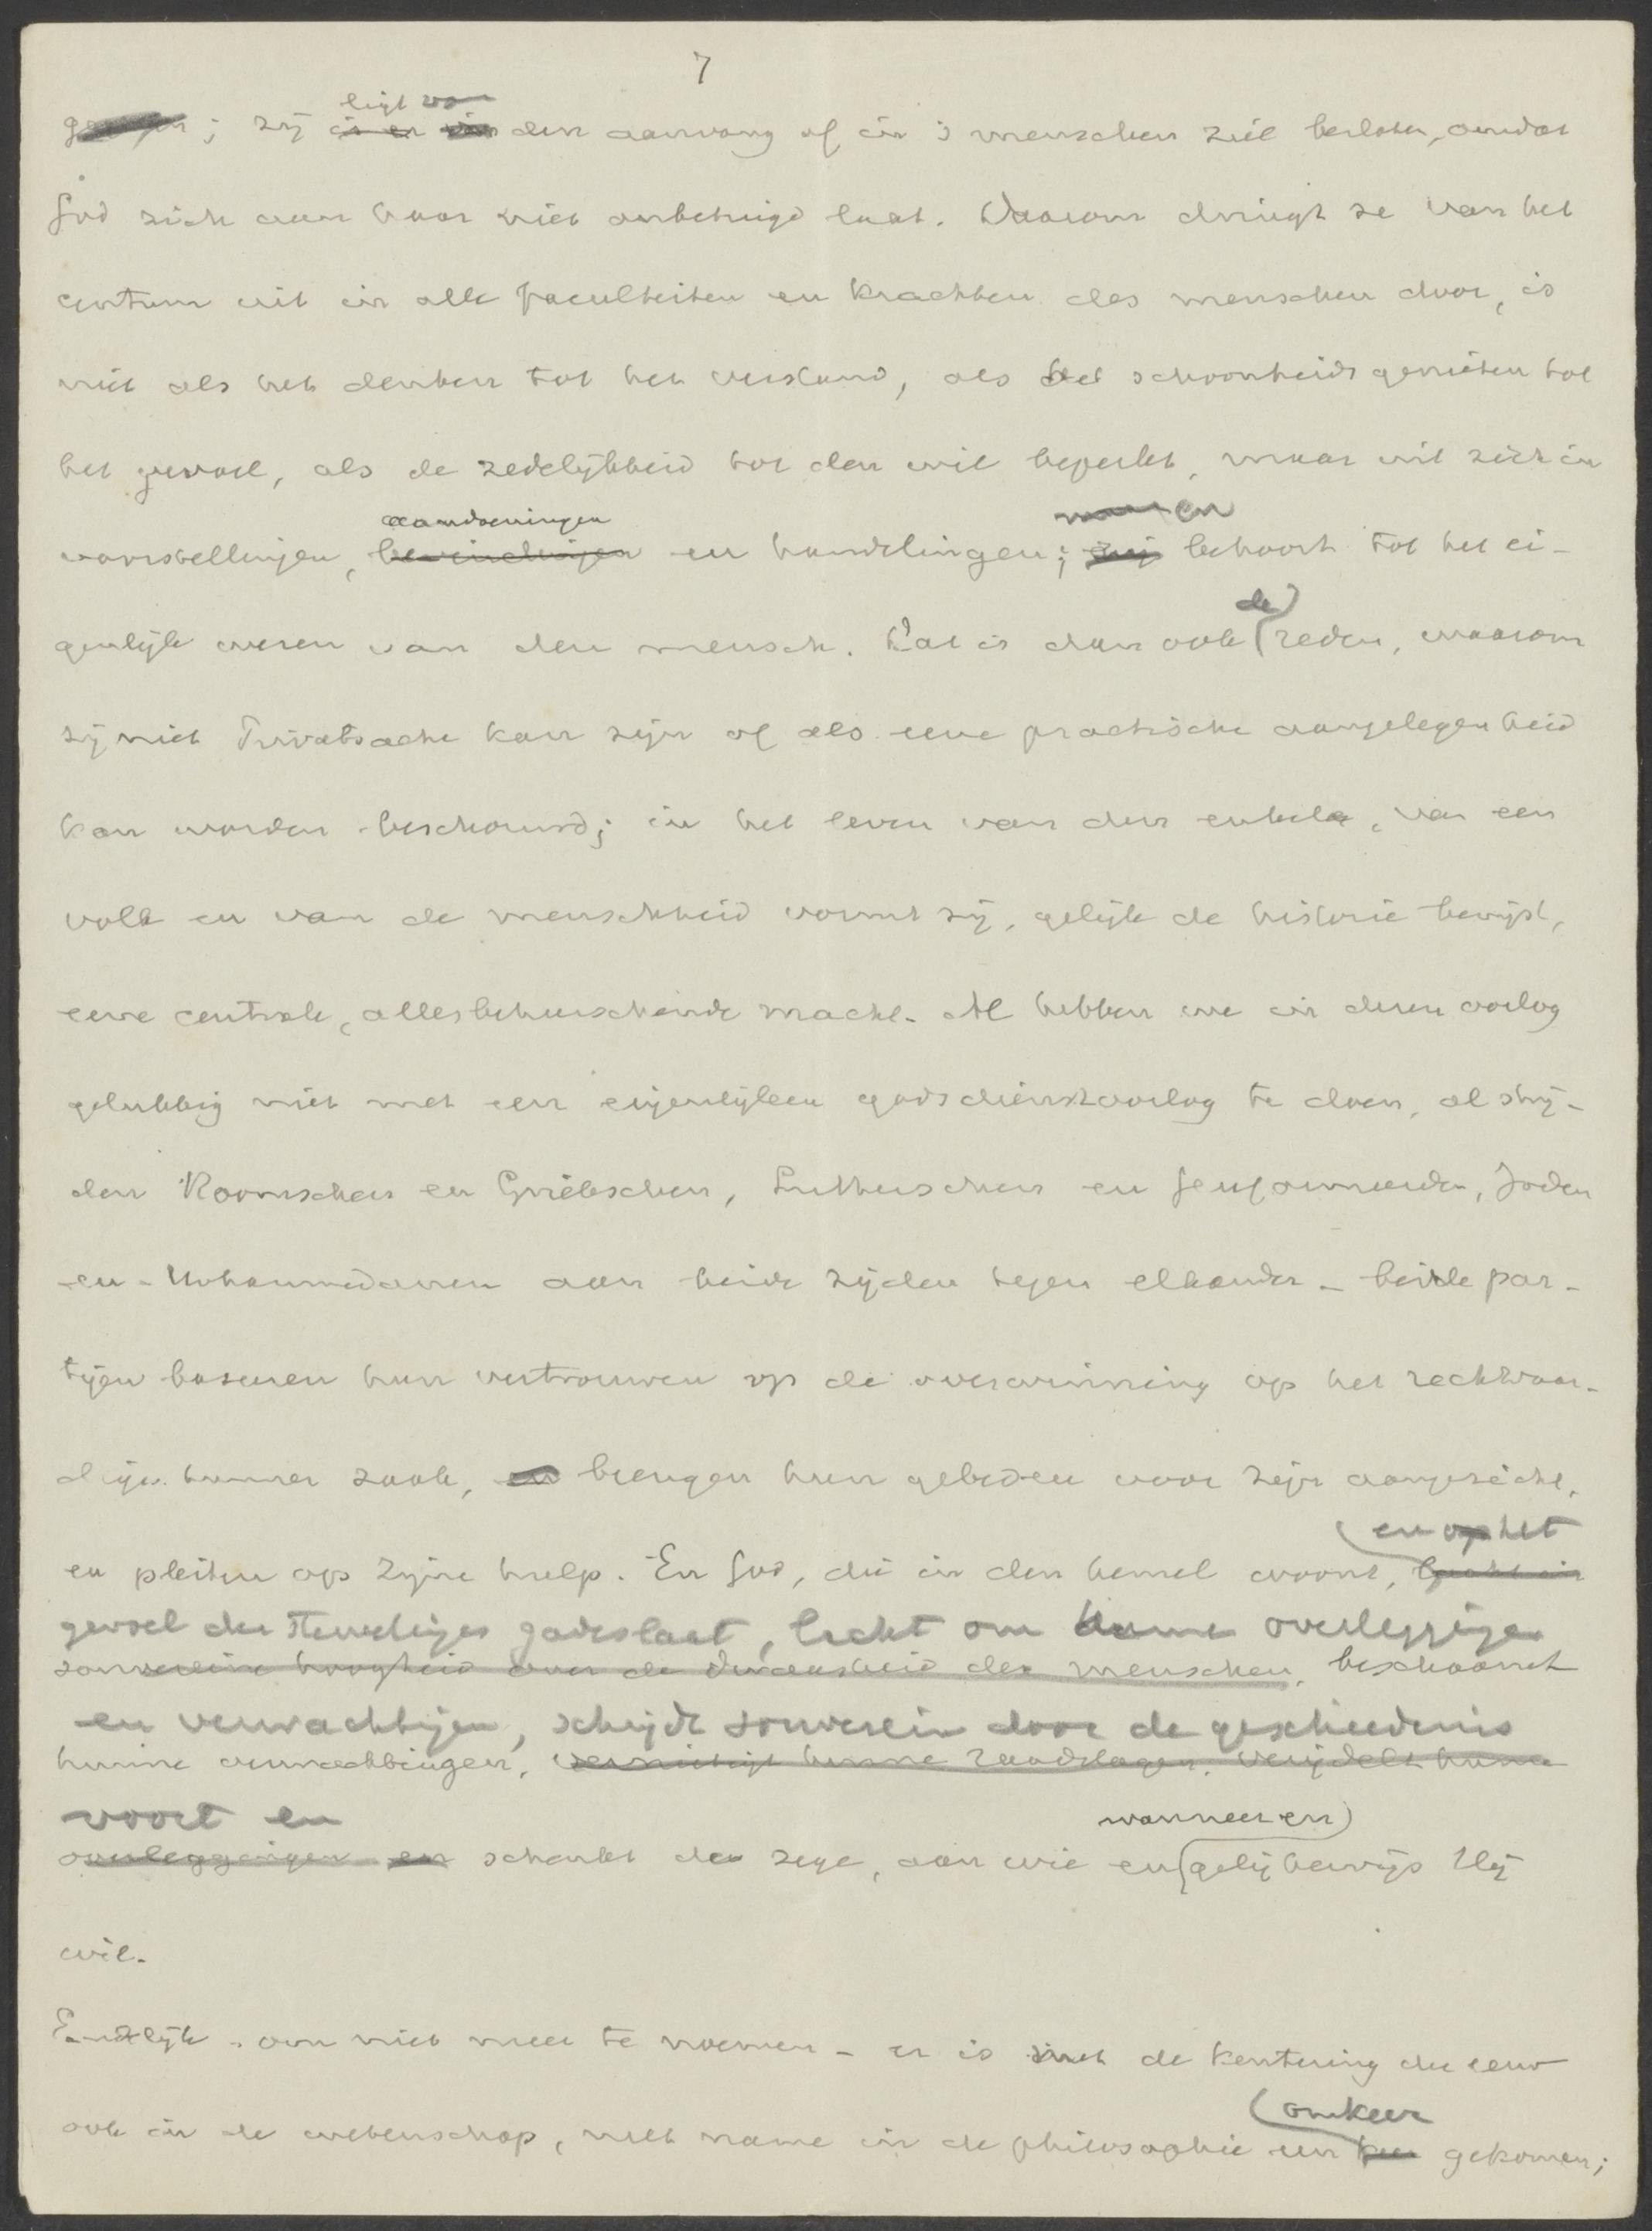 7
ligt van
; zij is er van den aanvang af in 's menschen ziel besloten, omdat
God zich aan haar niet onbetuigd laat. Daarom dringt ze van het
centrum uit in alle faculteiten en krachten des menschen door, is
niet als het denken tot het verstand, als het schoonheidsgenieten tot
het gevoel, als de zedelijkheid tot den wil beperkt, maar uit zich in
aandoeningen en
voorstellingen, bevindingen en handelingen; zij behoort tot het ei-
de
genlijk wezen van den mensch. Dat is dan ook reden, waarom
zij niet Privatsache kan zijn of als eene practische aangelegenheid
kan worden beschouwd; in het leven van den enkele, van een
volk en van de menschheid vormt zij, gelijk de historie bewijst,
eene centrale, allesbeheerschende macht. Al hebben we in dezen oorlog
gelukkig niet met een eigenlijken godsdienstoorlog te doen, al strij-
den Roomschen en Griekschen, Lutherschen en Gereformeerden, Joden
en Mohammedanen aan beide zijden tegen elkander - beide par-
tijen baseeren hun vertrouwen op de overwinning op het rechtvaar-
dige hunner zaak, en brengen hun gebeden voor Zijn aangezicht,
en op het
en pleiten op Zijne hulp. En God, die in den hemel woont, lacht in
gewoel der  gadeslaat, lacht om hunne overleggingen
souvereine hoogheid over de dwaasheid der menschen, beschaamt
en verwachtingen, schrijdt souverein door de geschiedenis
hunne verwachtingen, vernietigt hunne raadslagen, verijdelt hunne
voort en
wanneer en
overleggingen en schenkt de zege, aan wie en gelijkerwijs Hij
wil.
Eindelijk - om niet meer te noemen - er is met de kentering der eeuw
omkeer
ook in de wetenschap, met name in de philosophie een keer gekomen;